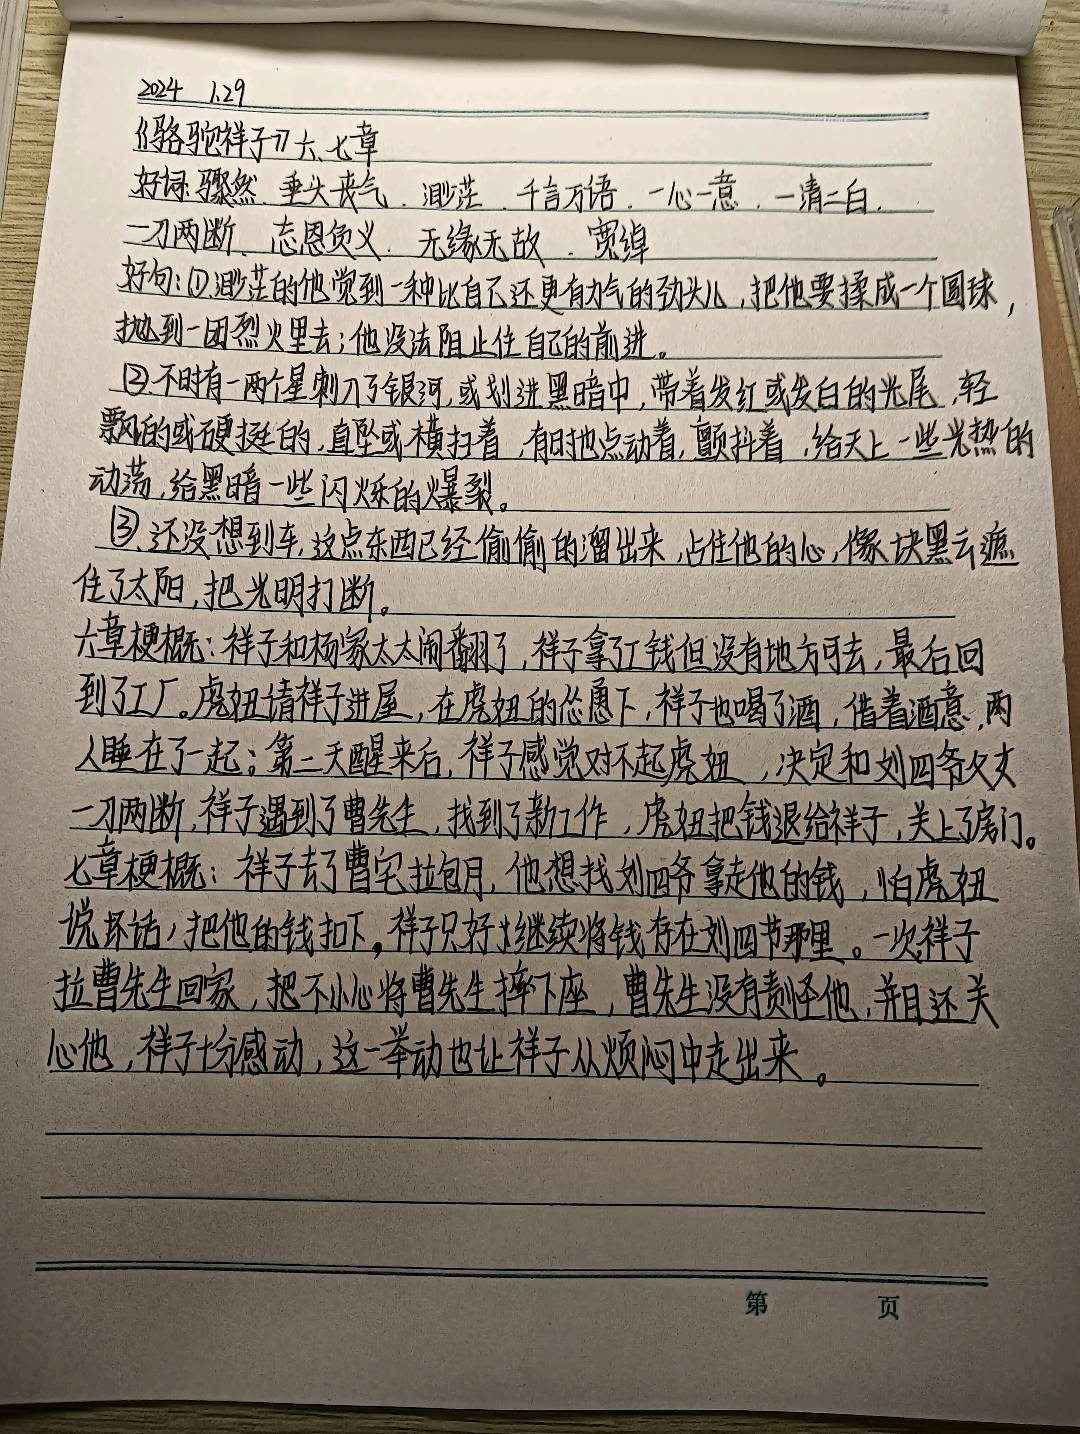 2024 1.29
《骆驼祥子》六、七章
好词:骤然、垂头丧气、渺茫、千言万语、一心一意、一清二白、
一刀两断、忘恩负义、无缘无故、宽绰
好句:①渺茫的他觉到一种比自己还更有力气的劲头儿,把他要揉成一个圆球,
抛到一团烈火里去;他没法阻止住自己的前进。
②、不时有一两个星刺刀了银河,或划进黑暗中,带着发红或发白的光尾,轻
飘的或硬挺的,直坠或横扫着,有时也点动着,颤抖着,给天上一些光热的
动荡,给黑暗一些闪烁的爆裂。
③、还没想到车,这点东西已经偷偷的溜出来,占住他的心,像块黑云遮
住了太阳,把光明打断。
六章梗概:祥子和杨家太太闹翻了,祥子拿了工钱但没有地方可去,最后回
到了工厂。虎妞请祥子进屋,在虎妞的怂恿下,祥子也喝了酒,借着酒意,两
人睡在了一起;第二天醒来后,祥子感觉对不起虎妞,决定和刘四爷父女
一刀两断,祥子遇到了曹先生,找到了新工作,虎妞把钱退给祥子,关上了房门。
七章梗概:祥子去了曹宅拉包月,他想找刘四爷拿走他的钱,怕虎妞
说坏话,把他的钱扣下。祥子只好继续将钱存在刘四节那里。一次,祥子
拉曹先生回家,把不小心将曹先生摔下座,曹先生没有责怪他,并且还关
心他,祥子十分感动,这一举动也让祥子从烦闷中走出来。
第 页